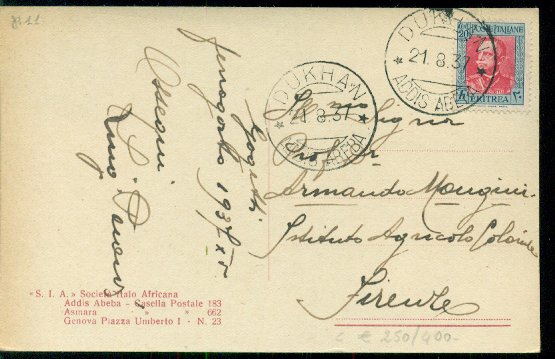 DUKHAN
21.8.37
ADDIS ABEBA
POSTE ITALIANE
20
ERITREA
DUKHAN
21.8.37
ADDIS ABEBA
1937 XV
Ossequi
Signor
Armando Maugini
Istituto Agricolo Coloniale
Firenze
"S. I. A." Società Italo Africana
Addis Abeba - Casella Postale 183
Asmara " " 662
Genova Piazza Umberto I - N. 23
€ 250/400-